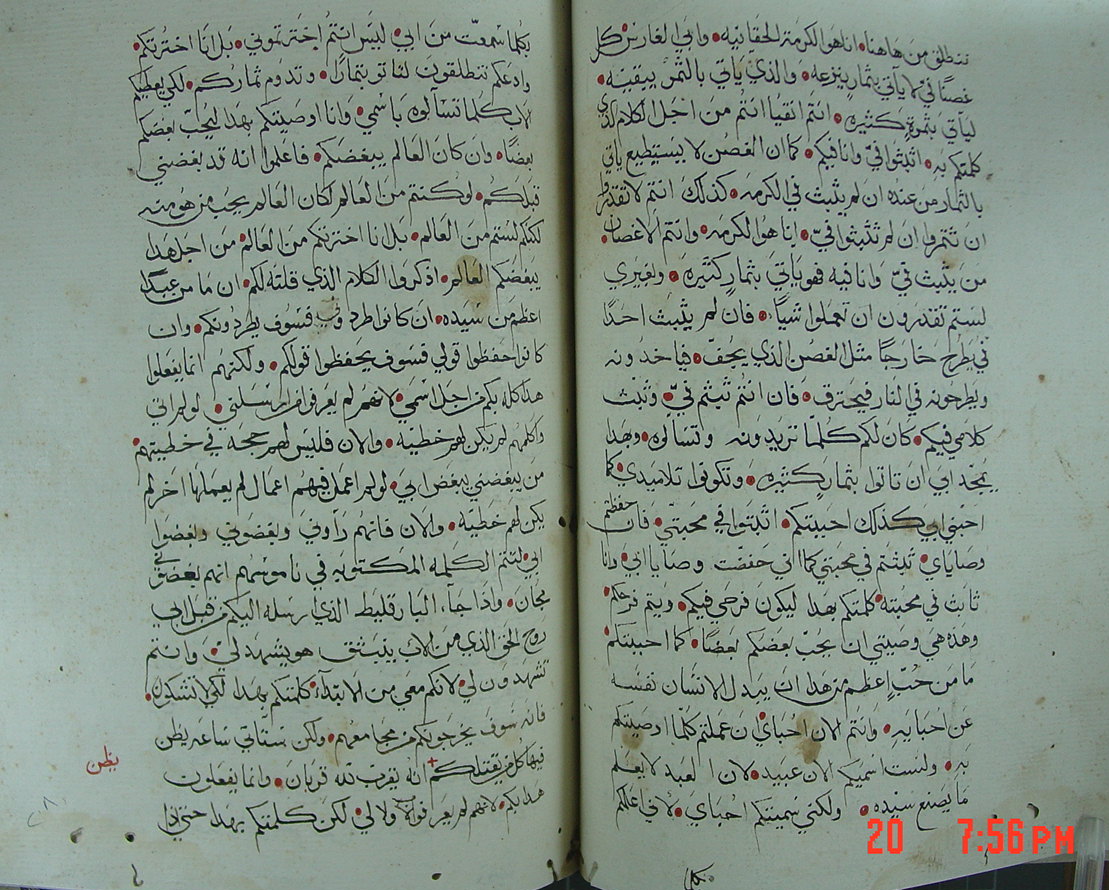 ننطلق من هاهنا. انا هو الكرمة الحقانيه. وابي الغارس كل
غصنًا فيّ لا يأتي بثمار ينزعه. والذي يأتي بالثمر ينقيه.
ليأتي بثمرةٍ كثيره. انتم انقيا انتم من اجل الكلام الذي
كلمتكم به. اثبتوا فيّ وانا فيكم. كما ان الغصن لا يستطيع ياتي
بالثمار من عنده ان لم يثبث في الكرمه. كذلك انتم لا تقدروا
ان تثمروا ان لم تثبتوا فيّ. انا هو الكرمه. وانتم الاغصان.
من يثبث فيّ وانا فيه فهو ياتي بثمار كثيره. ولغيري
لستم تقدرون ان تعملوا شياً. فان لم يثبث احدًا
فيّ يطرح خارجًا مثل الغصن الذي يجفّ. فياخدونه
ويطرحونه في النار فيحترق. فان انتم ثبثم فيّ. وثبث
كلامي فيكم. كان لكم كلما تريدونه وتسالوه. وبهدا
يمجّد ابي ان تاتوا بثمار كثيره. وتكونوا تلاميدي. كما
احبني ابي كذلك احببتكم. اثبتوا في محبتي. فان حفظتم
وصاياي. ثبثم في محبتي كما اني حفضت وصايا ابي. وانا
ثابت في محبته. كلمتكم بهدا ليكون فرحي فيكم. ويتم فرحكم.
وهده هي وصيتي ان يحبّ بعضكم بعضًا. كما احببتكم.
ما من حُبّ اعظم من هدا ان يبدل الانسان نفسه
عن احبايه. وانتم الان احباي. ان عملتم كلّما اوصيتكم
به. ولست اسميكم الان عبيد. لان العبد لا يعلم
ما يصنع سيّده. ولكني سميتكم احباي. لاني اعلمكم
بكلما سمعت من ابي. ليس انتم اخترتموني. بل انا اخترتكم.
وادعكم تنطلقون لتاتو بثمارٍ. وتدوم ثماركم. لكي يعطيكم
الاب كلما تسالوه باسمي. وانا اوصيتكم بهدا ليحبّ بعضكم
بعضًا. وان كان العالم يبغضكم. فاعلموا انه قد بغضني
قبلكم. لو كنتم من العالم لكان العالم يحبّ من هو منه
لكنكم لستم من العالم. بل انا اخترتكم من العالم. من اجل هدا
يبغضكم العالم. اذكروا الكلام الذي قلته لكم. ان ما من عبدًا
اعظم من سيده. ان كانوا طردوني فسوف يطردونكم. وان
كانوا حفظوا قولي فسوف يحفظوا قولكم. ولكنهم انما يفعلوا
هدا كله بكم من اجل اسمي. لانهم لم يعرفوا من ارسلني. لو لم اتي
واكلمهم لم يكن لهم خطيّه. والان فليس لهم حجه في خطيتهم.
من يبغضني يبغض ابي. لو لم اعمل فيهم اعمال لم يعملها اخر لم
يكن لهم خطيّه. والان فانهم راوني وبغضوني وبغضوا
ابي. لتتم الكلمه المكتوبه في ناموسهم انهم بغضوني
مجان. واذا جآء البارقليط الذي ارسله اليكم من قبل ابي
روح الحق الذي من الاب ينبثق هو يشهد لي. وانتم
تشهدون لي. لانكم معي من الابتداء. كلمتكم بهدا لكي لا تشكوا.
فانه سوف يخرجوكم من مجامعهم. ولكن ستاتي ساعه يظن
فيها كل من يقتلكم انه يقرب لله قربان. وانما يفعلون
هدا بكم. لانهم لم يعرفوا ولا لي. لكن كلمتكم بهدا حتى اذا
يظن
20 7:56 PM